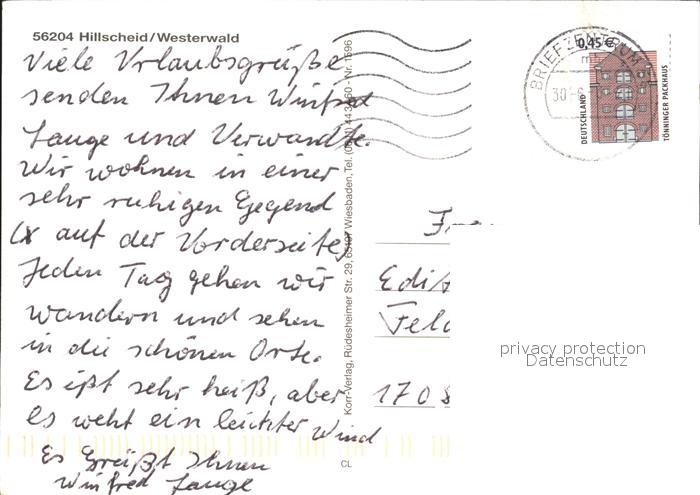 56204 Hillscheid/Westerwald
Viele Urlaubsgrüße
senden Ihnen Winfred
Lange und Verwandte.
Wir wohnen in einer
sehr ruhigen Gegend
(x auf der Vorderseite)
Jeden Tag gehen wir
wandern und sehen
in die schönen Orte.
Es ist sehr heiß, aber
es weht ein leichter Wind
Es Grüßt Ihnen
Winfred Lange
Korr-Verlag, Rüdesheimer Str. 29, Wiesbaden, Tel. Nr. 1596
CL
BRIEFZENTRUM
0,45 €
DEUTSCHLAND
TÖNNINGER PACKHAUS
Edit
Feld
1708
privacy protection
Datenschutz